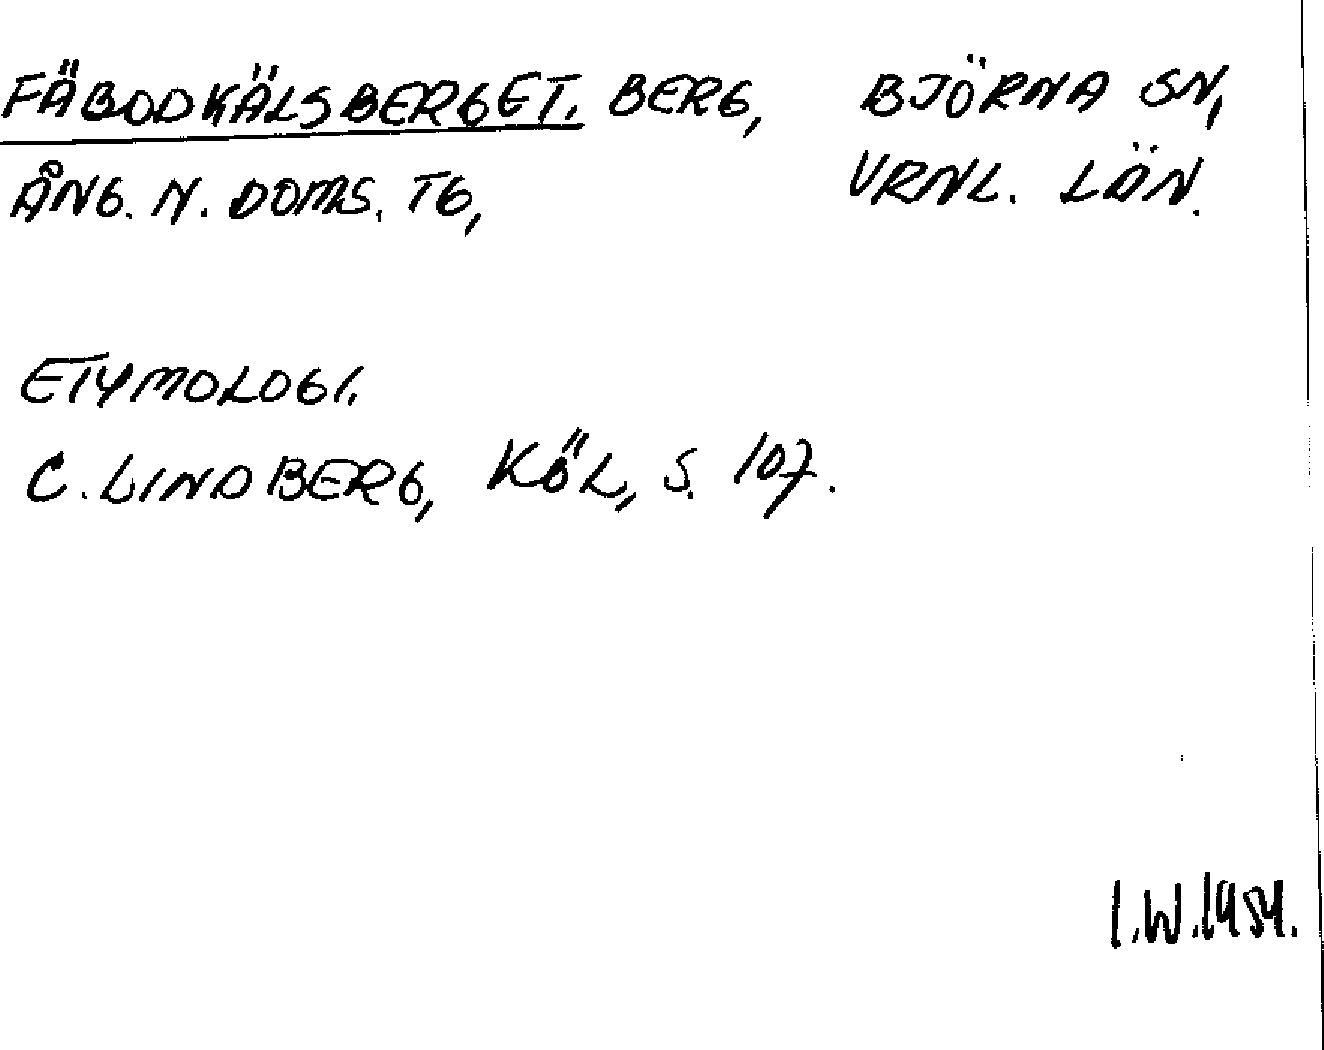 FÄBODKÄLSBERGET. BERG, BJÖRNA SN,
ÅNG. N. DOMS. TG, VRNL. LÄN.
ETYMOLOGI.
C. LINDBERG, KÖL, S. 107.
I.W.1954.